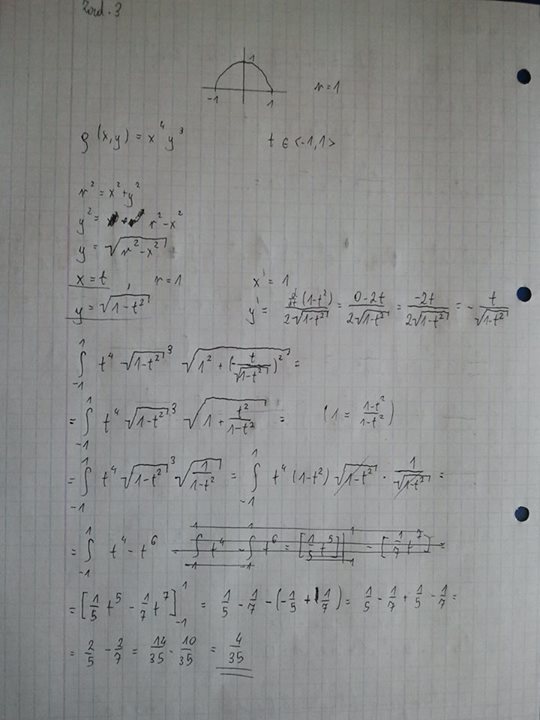 Zad. 3
1
-1 1 r=1
ρ(x,y) = x⁴y³ t ∈ <-1,1>
r² = x²+y²
y² = r²-x²
y = √(r²-x²)
x = t, r=1 x' = 1
y = √(1-t²) y' = (d/dt (1-t²))/(2√(1-t²)) = (0-2t)/(2√(1-t²)) = (-2t)/(2√(1-t²)) = -t/√(1-t²)
∫₋₁¹ t⁴ √(1-t²)³ √(1² + (-t/√(1-t²))²) =
= ∫₋₁¹ t⁴ √(1-t²)³ √(1 + t²/(1-t²)) = (1 = (1-t²)/(1-t²))
= ∫₋₁¹ t⁴ √(1-t²)³ √(1/(1-t²)) = ∫₋₁¹ t⁴ (1-t²) √(1-t²) · 1/√(1-t²) =
= ∫₋₁¹ t⁴ - t⁶ = ∫₋₁¹ t⁴ - ∫₋₁¹ t⁶ = [1/5 t⁵]₋₁¹ - [1/7 t⁷] =
= [1/5 t⁵ - 1/7 t⁷]₋₁¹ = 1/5 - 1/7 - (-1/5 + 1/7) = 1/5 - 1/7 + 1/5 - 1/7 =
= 2/5 - 2/7 = 14/35 - 10/35 = 4/35